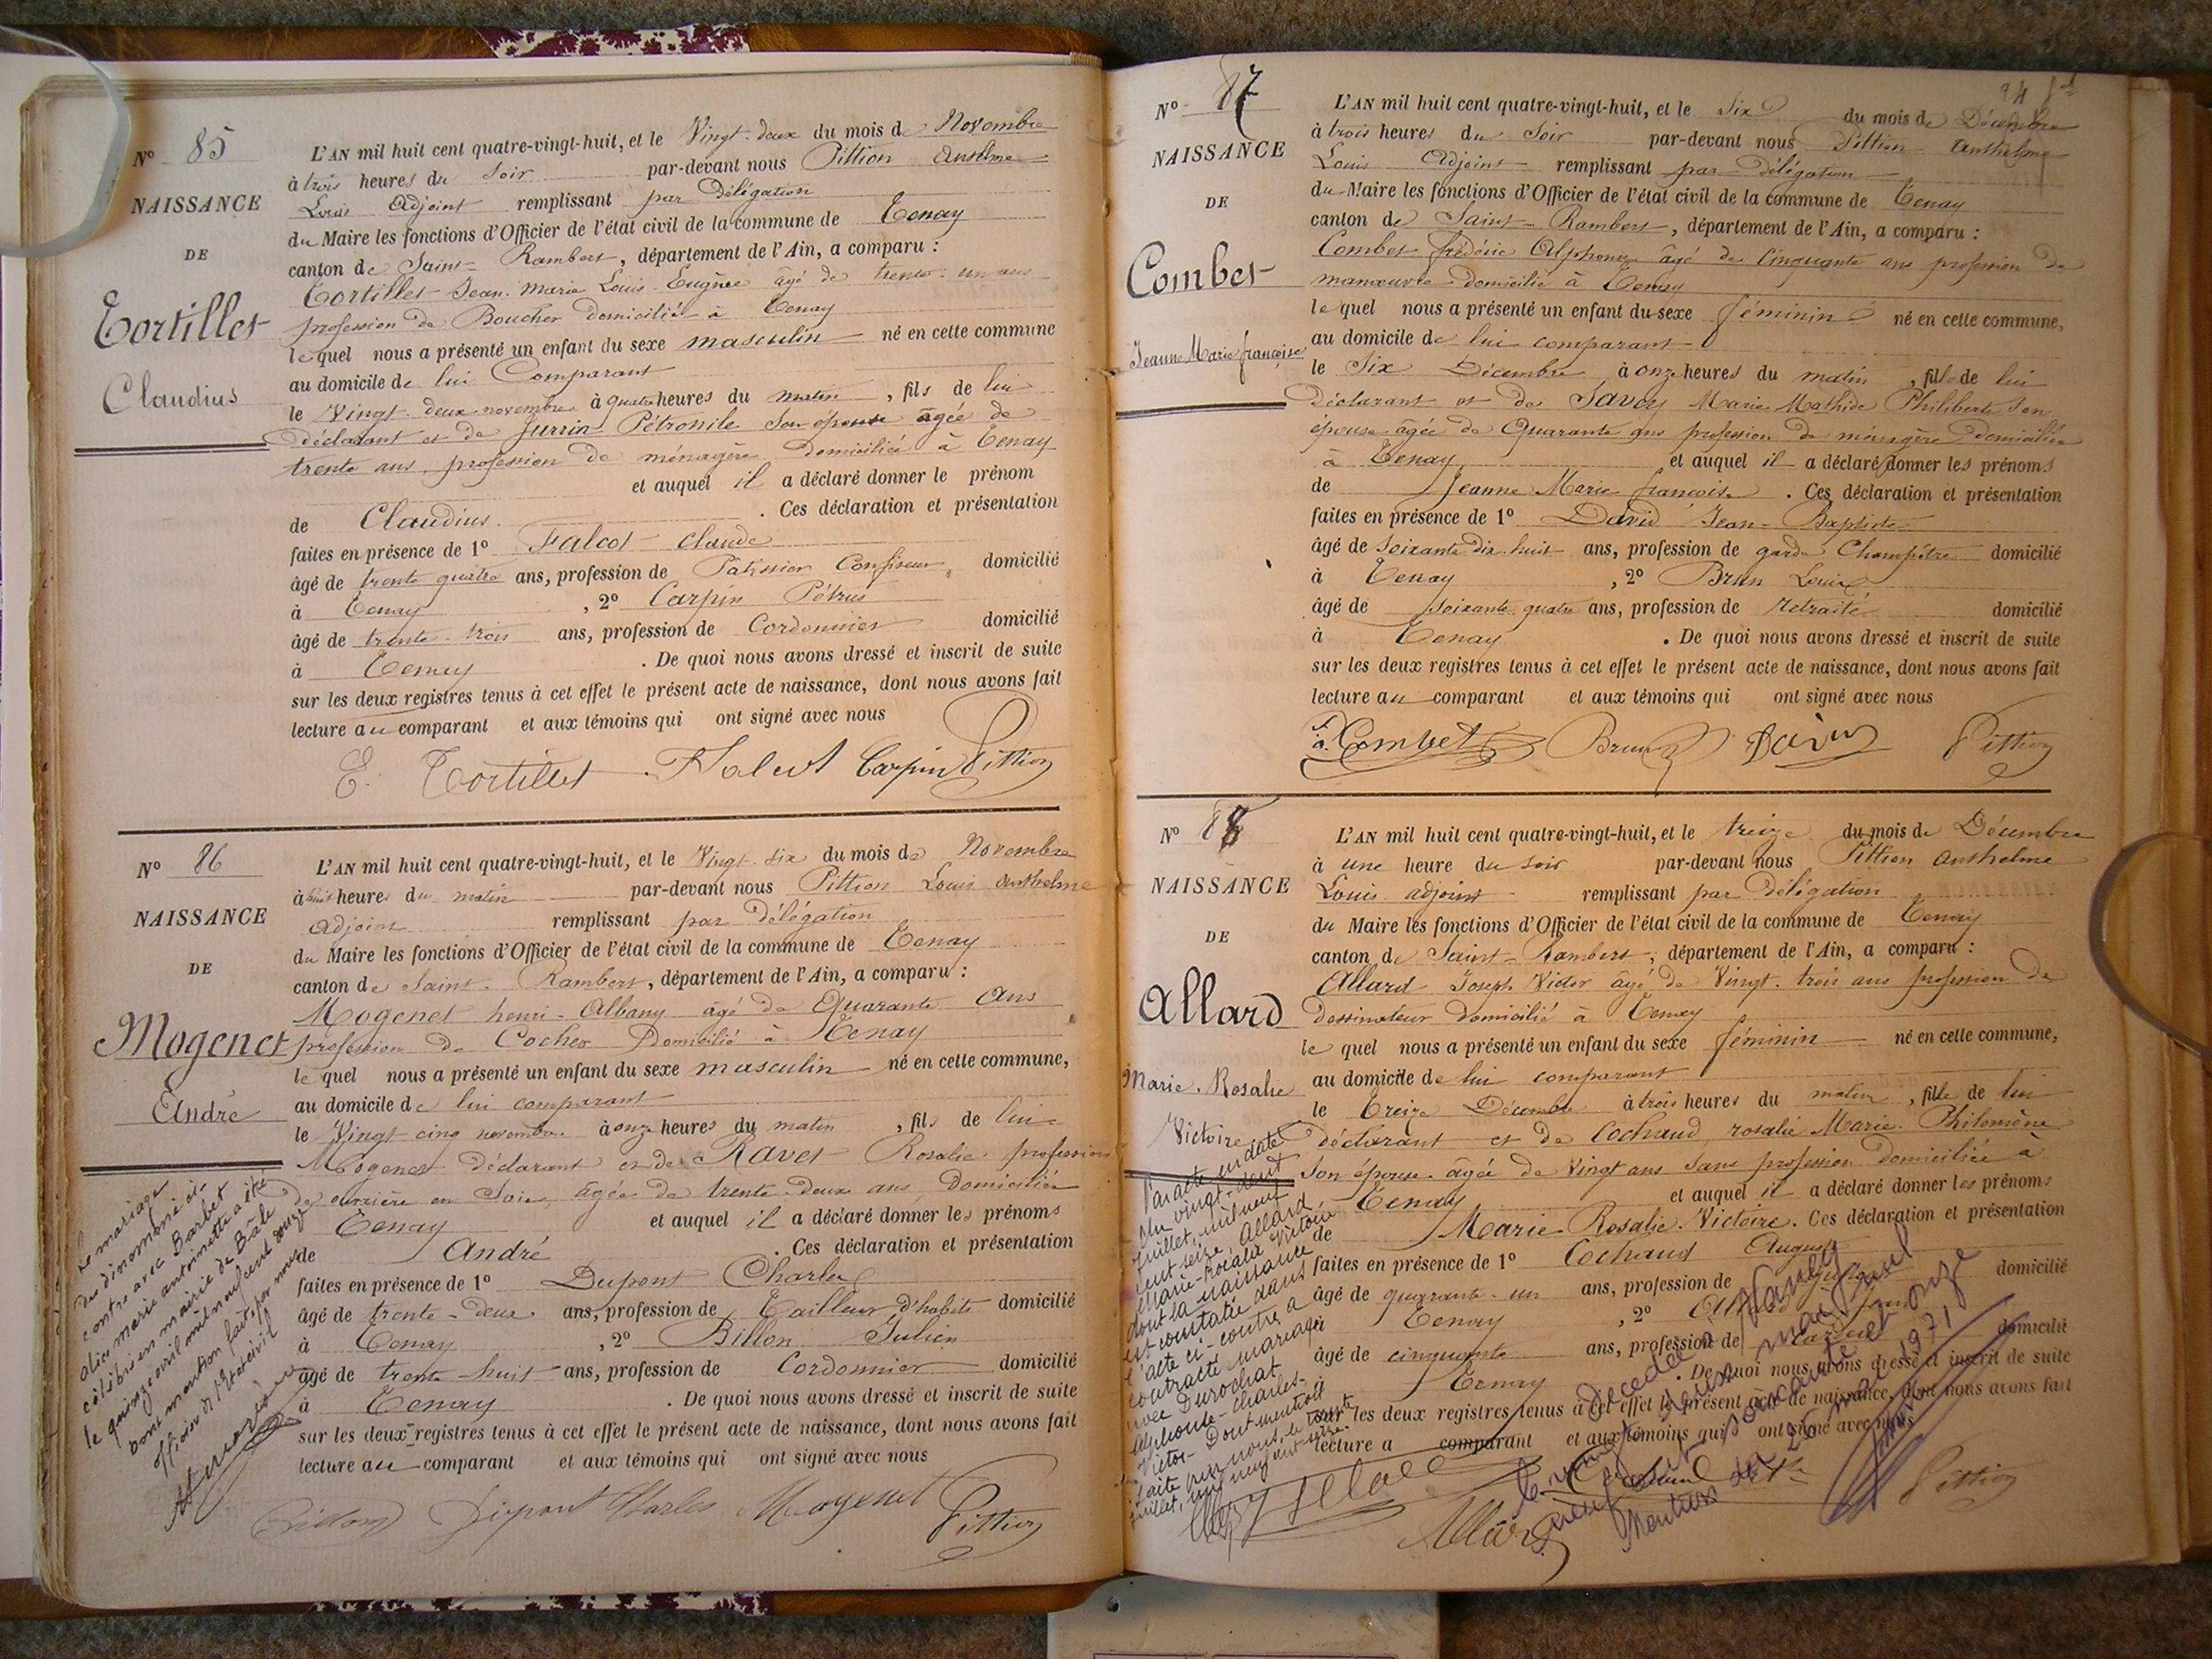 N° 85
NAISSANCE
DE
Tortillet
Claudius
L'AN mil huit cent quatre-vingt-huit, et le Vingt-deux du mois de Novembre
à trois heures du Soir par-devant nous Pittion Anselme
Louis Adjoint remplissant par Délégation
du Maire les fonctions d'Officier de l'état civil de la commune de Tenay
canton de Saint-Rambert, département de l'Ain, a comparu :
Tortillet Jean-Marie Louis Eugène âgé de trente-un ans
profession de Boucher domicilié à Tenay
lequel nous a présenté un enfant du sexe masculin né en cette commune
au domicile de lui Comparant
le Vingt-deux novembre à quatre heures du matin, fils de lui
déclarant et de Jurrin Pétronile Son épouse âgée de
trente ans, profession de ménagère Domiciliée à Tenay
et auquel il a déclaré donner le prénom
de Claudius. Ces déclaration et présentation
faites en présence de 1° Falcot Claude
âgé de trente quatre ans, profession de Patissier Confiseur domicilié
à Tenay, 2° Carpin Pétrus
âgé de trente-trois ans, profession de Cordonnier domicilié
à Tenay. De quoi nous avons dressé et inscrit de suite
sur les deux registres tenus à cet effet le présent acte de naissance, dont nous avons fait
lecture au comparant et aux témoins qui ont signé avec nous
E. Tortillet Falcot Carpin Pittion
N° 86
NAISSANCE
DE
Mogenet
André
L'AN mil huit cent quatre-vingt-huit, et le Vingt-six du mois de Novembre
à huit heures du matin par-devant nous Pittion Louis Anthelme
Adjoint remplissant par délégation
du Maire les fonctions d'Officier de l'état civil de la commune de Tenay
canton de Saint-Rambert, département de l'Ain, a comparu :
Mogenet henri-Albany âgé de Quarante Ans
profession de Cocher Domicilié à Tenay
lequel nous a présenté un enfant du sexe masculin né en cette commune,
au domicile de lui comparant
le Vingt-cinq novembre à onze heures du matin, fils de lui
Mogenet déclarant et de Ravet Rosalie profession
de ouvrière en Soie, âgée de trente-deux ans Domiciliée
Tenay et auquel il a déclaré donner les prénoms
de André. Ces déclaration et présentation
faites en présence de 1° Dupont Charles
âgé de trente-deux ans, profession de Tailleur d'habits domicilié
à Tenay, 2° Billon Julien
âgé de trente-huit ans, profession de Cordonnier domicilié
à Tenay. De quoi nous avons dressé et inscrit de suite
sur les deux registres tenus à cet effet le présent acte de naissance, dont nous avons fait
lecture au comparant et aux témoins qui ont signé avec nous
Billon Dupont Charles Mogenet Pittion
Le mariage
du dénommé ci
contre avec Barbet
Alice Marie Antoinette a été
célébré en mairie de Bâle
le quinze avril mil neuf cent douze
dont mention faite par nous
officier de l'Etat civil
N° 87
NAISSANCE
DE
Combet
Jeanne Marie françoise
L'AN mil huit cent quatre-vingt-huit, et le Six du mois de Décembre
à trois heures du Soir par-devant nous Pittion Anthelme
Louis Adjoint remplissant par Délégation
du Maire les fonctions d'Officier de l'état civil de la commune de Tenay
canton de Saint-Rambert, département de l'Ain, a comparu :
Combet frédéric Alphonse âgé de Cinquante ans profession de
manœuvre Domicilié à Tenay
lequel nous a présenté un enfant du sexe féminin né en cette commune,
au domicile de lui comparant
le Six Décembre à onze heures du matin, fille de lui
Déclarant et de Savey Marie Mathide Philiberte Son
épouse âgée de Quarante ans profession de ménagère Domiciliée
à Tenay et auquel il a déclaré donner les prénoms
de Jeanne Marie françoise. Ces déclaration et présentation
faites en présence de 1° David Jean-Baptiste
âgé de soixante dix-huit ans, profession de garde Champêtre domicilié
à Tenay, 2° Brun Louis
âgé de soixante quatre ans, profession de Retraité domicilié
à Tenay. De quoi nous avons dressé et inscrit de suite
sur les deux registres tenus à cet effet le présent acte de naissance, dont nous avons fait
lecture au comparant et aux témoins qui ont signé avec nous
Combet Brun David Pittion
N° 88
NAISSANCE
DE
Allard
Marie-Rosalie
Victoire
L'AN mil huit cent quatre-vingt-huit, et le treize du mois de Décembre
à une heure du soir par-devant nous Pittion Anthelme
Louis adjoint remplissant par Délégation
du Maire les fonctions d'Officier de l'état civil de la commune de Tenay
canton de Saint-Rambert, département de l'Ain, a comparu :
Allard Joseph Victor âgé de Vingt-trois ans profession de
dessinateur Domicilié à Tenay
lequel nous a présenté un enfant du sexe féminin né en cette commune,
au domicile de lui comparant
le Treize Décembre à trois heures du matin, fille de lui
déclarant et de Cochaud rosalie Marie Philomène
Son épouse âgée de Vingt ans Sans profession Domiciliée à
Tenay et auquel il a déclaré donner les prénoms
de Marie-Rosalie-Victoire. Ces déclaration et présentation
faites en présence de 1° Cochaud Auguste
âgé de quarante-un ans, profession de domicilié
à Tenay, 2°
âgé de cinquante ans, profession de domicilié
à Tenay. De quoi nous avons dressé et inscrit de suite
sur les deux registres tenus à cet effet le présent acte de naissance, dont nous avons fait
lecture a comparant et aux témoins qui ont signé avec nous
Allard Pittion
Par acte en date
du vingt-deux
juillet mil neuf
cent seize, Allard
Marie-Rosalie Victoire
dont la naissance
est constatée dans
l'acte ci-contre a
contracté mariage
avec Durochat
Alphonse-Charles-
Victor. Dont mention
faite par nous, le trente
juillet, mil neuf cent seize.
Décédée à Nancy
le vingt deux mai mil
neuf cent soixante et onze
Mention du 26 mai 1971